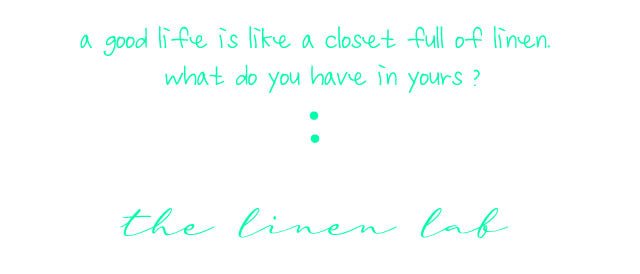 a good life is like a closet full of linen.
what do you have in yours ?
:
the linen lab